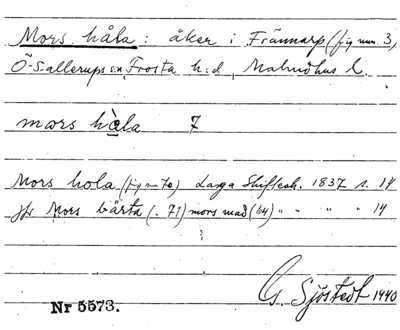 Mors håla: åker i Frännarp (fig num. 3)
Ö. Sallerups sn, Frosta h:d, Malmöhus l.
mars hàla 7
Mors hola (fig nr 70) Laga Skifteh. 1837 s. 14
jfr Mors bärta (. 71) mors mad (64) " " " " 14
G. Sjöstedt 1940
Nr 5573.